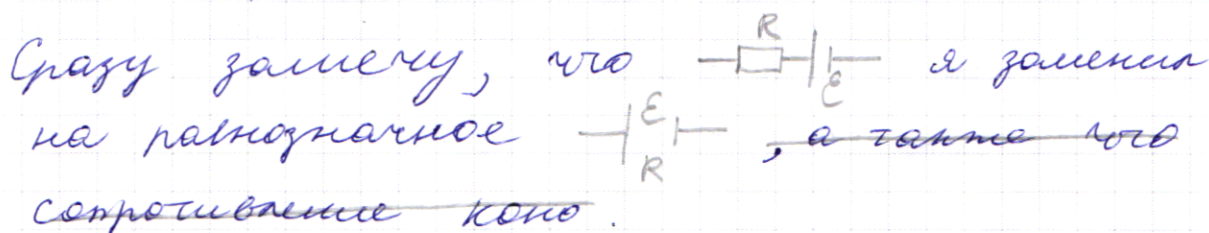 Сразу замечу, что R ℰ я заменил
на равнозначное ℰ R , а также что
сопротивление коно .